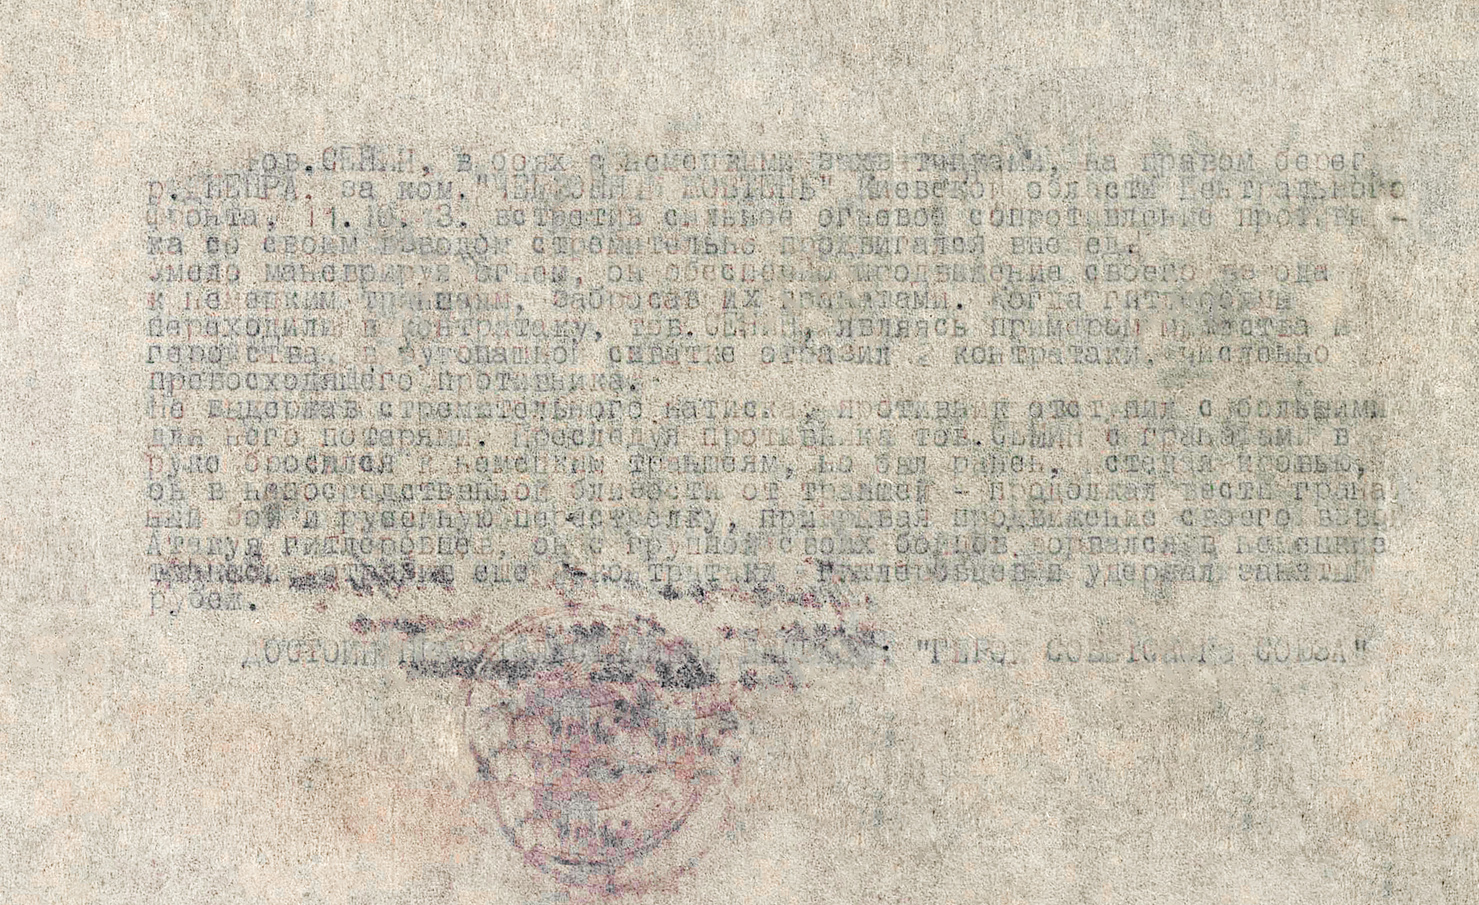 тов.СЕНИН, в боях с немецкими захватчиками, на правом берег
р.ДНЕПРА, за ком. Киевской области Центрального
фронта, встретив сильное огневое сопротивление против -
ка со своим взводом стремительно продвигался вперед.
Умело маневрируя огнем, он обеспечил продвижение своего взвода
к немецким траншеям, забросав их гранатами. Когда гитлеровцы
переходили в контратаку, тов.СЕНИН, являясь примером мужества и
геройства, в рукопашной схватке отразил контратаки, численно
превосходящего противника.
Не выдержав стремительного натиска, противник отступил с большими
для него потерями. Преследуя противника тов.СЕНИН с гранатами в
руке бросился к немецким траншеям, но был ранен, истекая кровью,
он в непосредственной близости от траншей - продолжал вести грана
ный бой и ружейную перестрелку, прикрывая продвижение своего взвод
Атакуя гитлеровцев, он с группой своих бойцов ворвался в немецкие
траншеи, отразив еще контратаки гитлеровцев и удержал занятый
рубеж.
ДОСТОИН "ГЕРОЙ СОВЕТСКОГО СОЮЗА"